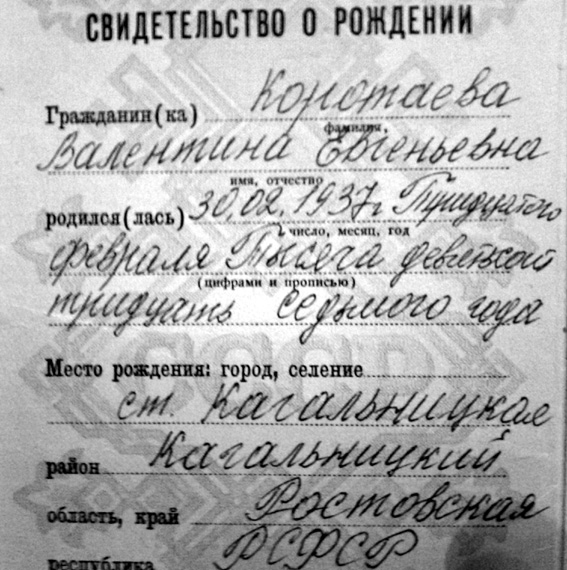 СВИДЕТЕЛЬСТВО О РОЖДЕНИИ
Гражданин(ка) Коротаева
фамилия,
Валентина Евгеньевна
имя, отчество
родился(лась) 30.02.1937г Тридцатого
число, месяц, год
февраля Тысяча девятьсот
(цифрами и прописью)
тридцать седьмого года
Место рождения: город, селение
ст. Кагальницкая
район Кагальницкий
область, край Ростовская
республика РСФСР